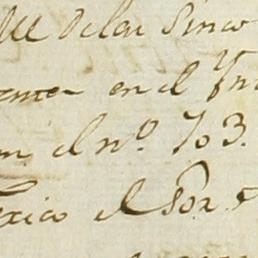 de las Sinco
en el Yn
el nº. 703.
xico el Sor.